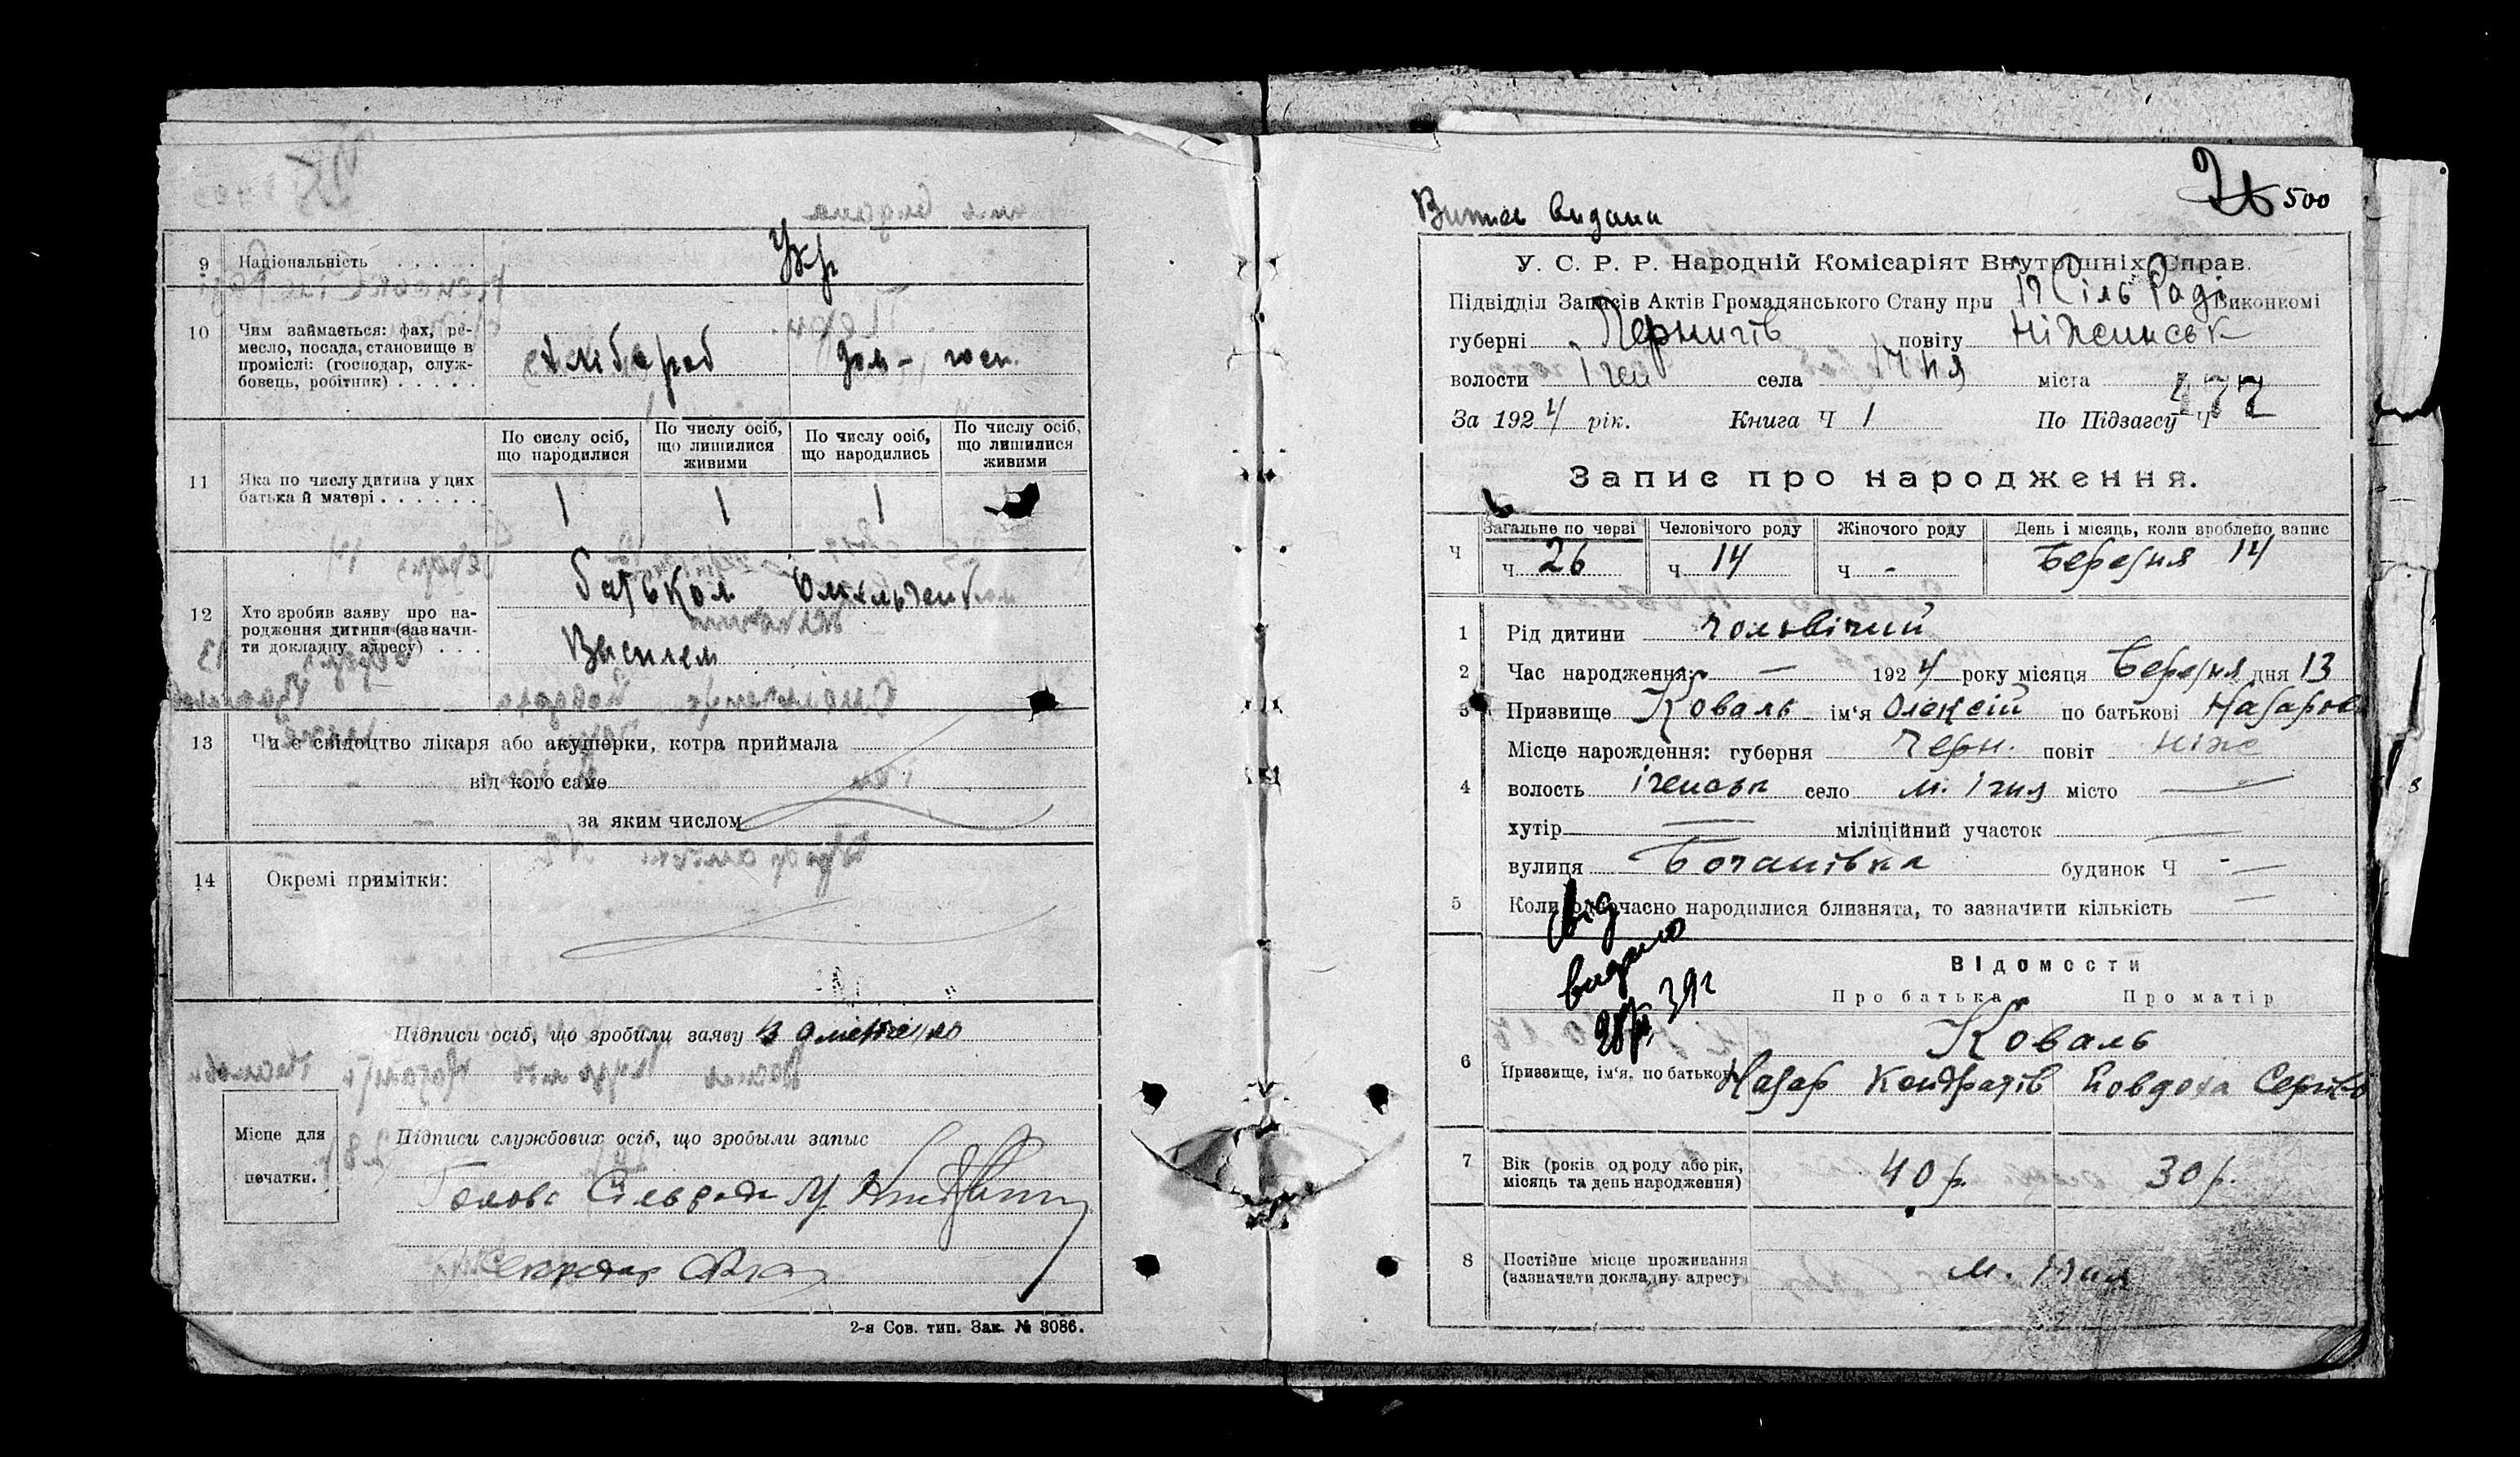 9 Національність . . . . . Укр
10 Чим займається: фах, ре-
месло, посада, становище в
проміслі: (господар, служ-
бовець, робітник) . . . . . хлібороб дом- госп.
По сислу осіб, що народилися
По числу осіб, що лишилися живими
По числу осіб, що народились
По числу осіб, що лишилися живими
11 Яка по числу дитина у цих
батька й матері . . . . . . 1 1 1
12 Хто зробив заяву про на-
родження дитини (зазначи-
ти докладну адресу) . . .
батьком Омельченком
Василем
13 Чи є свідоцтво лікаря або акушерки, котра приймала
від кого саме
за яким числом
14 Окремі примітки:
Підписи осіб, що зробили заяву В Омельченко
Місце для
печатки.
Підписи службових осіб, що зробыли запыс
Голова Сільради
Секретар
2-я Сов. тип. Зак. № 3086.
26 500
Витяг видано
У. С. Р. Р. Народній Комісаріят Внутрішніх Справ.
Підвідділ Записів Актів Громадянського Стану при Іч Сіль Раді виконкомі
губерні Чернигів повіту Ніжинськ
волости Ічен села Ічня міста
За 1924 рік. Книга Ч 1 По Підзагсу Ч 177
Запис про народження.
Загальне по черзі Человічого роду Жіночого роду День і місяць, коли зроблено запис
Ч Ч 26 Ч 14 Ч - Березня 14
1 Рід дитини чоловічий
2 Час народження: — 1924 року місяця Березня дня 13
3 Призвище Коваль ім'я Олексій по батькові Назаров
Місце народження: губерня Черн. повіт Ніж
4 волость Іченськ село м. Ічня місто —
хутір — міліційний участок —
вулиця Бочанівка будинок Ч —
5 Коли одночасно народилися близнята, то зазначити кількість —
від
видано
39г
ВІДОМОСТИ
Про батька Про матір
Коваль
6 Призвище, ім'я, по батькові Назар Кондратів Їовдоха Сергієв
7 Вік (років од роду або рік,
місяць та день народження) 40 р. 30 р.
8 Постійне місце проживання
(зазначити докладну адресу) м. Ічня